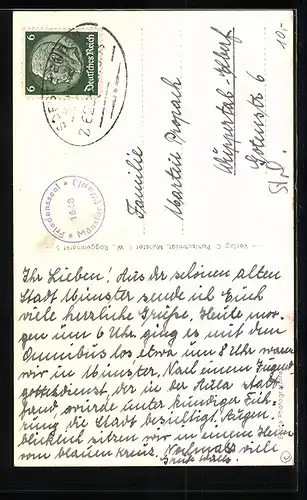 10,-
6
Deutsches Reich
6
Friedenssaal
1648
Münster
Familie
Martin
Wuppertal-Elberf
6
Verlag C. Poltschmidt, Münster i. W., Roggenmarkt 5
Ihr Lieben! Aus der schönen alten
Stadt Münster sende ich Euch
viele herzliche Grüße. Heute mor-
gen um 6 Uhr ging es mit dem
Omnibus los, etwa um 8 Uhr waren
wir in Münster. Nach einem Jugend
gottesdienst, der in der Aula statt
fand, wurde unter kundiger Füh-
rung die Stadt besichtigt. Augen-
blicklich sitzen wir in einem Heim
vom blauen Kreuz. Nochmals viele
Grüße